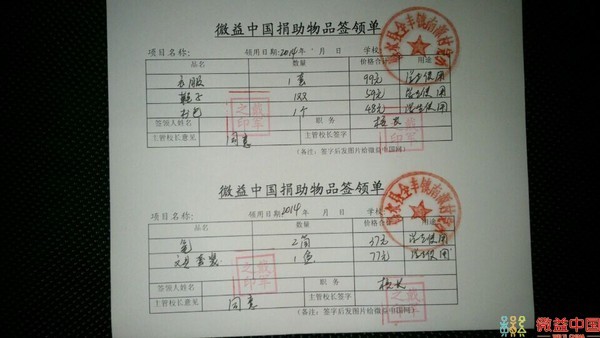 微益中国捐助物品签领单
项目名称: 领用日期2014年 月 日 学校:
品名 数量 价格合计 用途
衣服 1套 99元 学生使用
鞋子 1双 59元 学生使用
书包 1个 48元 学生使用
签领人姓名 职务 校长
主管校长意见 同意 主管校长签字
(备注:签字后发图片给微益中国网)
微益中国捐助物品签领单
项目名称: 领用日期2014年 月 日 学校:
品名 数量 价格合计 用途
笔 2筒 37元 学生使用
文具套装 1盒 77元 学生使用
签领人姓名 职务 校长
主管校长意见 同意 主管校长签字
(备注:签字后发图片给微益中国网)
微益中国